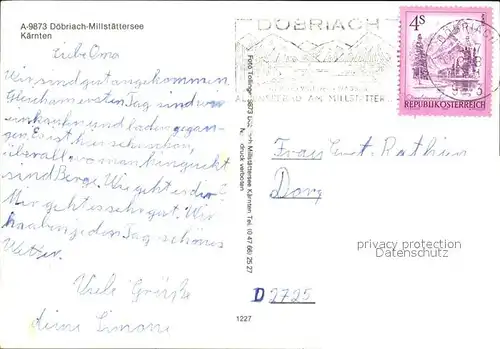 A-9873 Döbriach-Millstättersee
Kärnten
Liebe Oma
Wir sind gut angekommen.
Gleich am ersten Tag sind wir
einkaufen und baden gegan-
gen. Es ist hier schön,
überall wo man hinguckt
sind Berge. Wie geht es dir?
Mir geht es sehr gut. Wir
haben jeden Tag schönes
Wetter.
Viele Grüße
deine Simone
Foto 9873 Döbriach Millstättersee Kärnten Tel. (0 47 66) 25 27
druck verboten
1227
DÖBRIACH
AM MILLSTÄTTER
4S
REPUBLIK ÖSTERREICH
DÖBRIACH
Frau Ernst Rathjen
Dorg
D 2725
privacy protection
Datenschutz